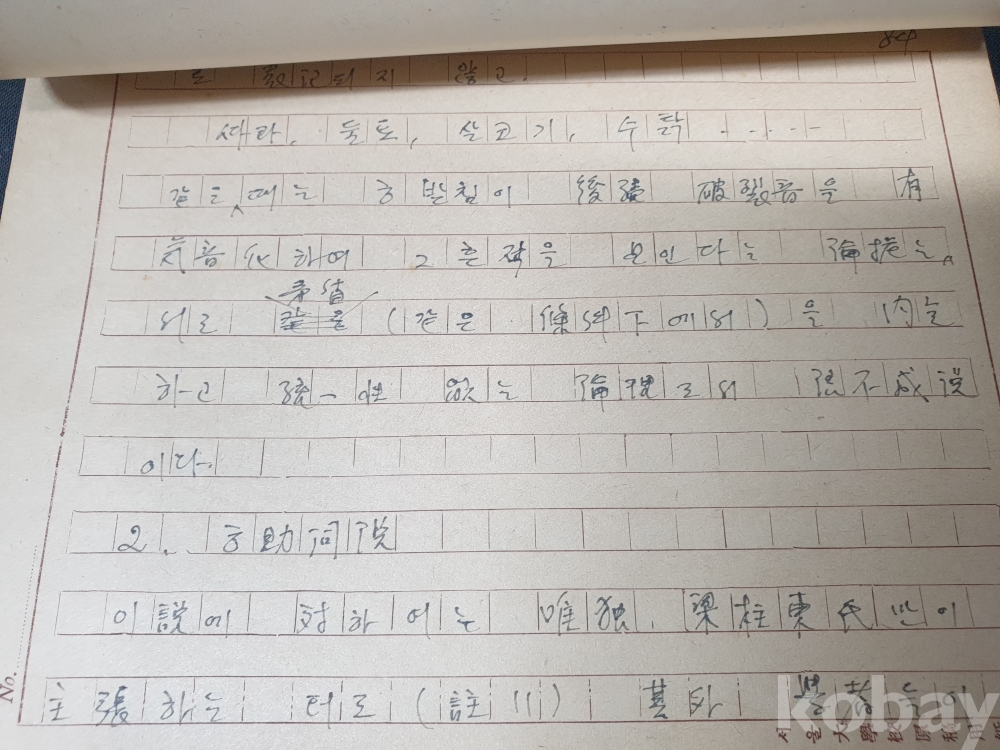 84
로 表記되지 않고.
사라, 둑토, 살고기, 수탉 .....
같은 때는 ㅎ 받침이 後續 破裂音을 有
気音化하여 그 흔적을 보인다는 論據는
서로 矛盾 (같은 條件下에서) 을 内包
하고 統一性 없는 論理로서 語不成說
이다.
2. ㅎ助詞說
이 說에 対하여는 唯独, 梁柱東氏만이
主張하는 터로 (註11) 其外
No.
서울大學校
kobay